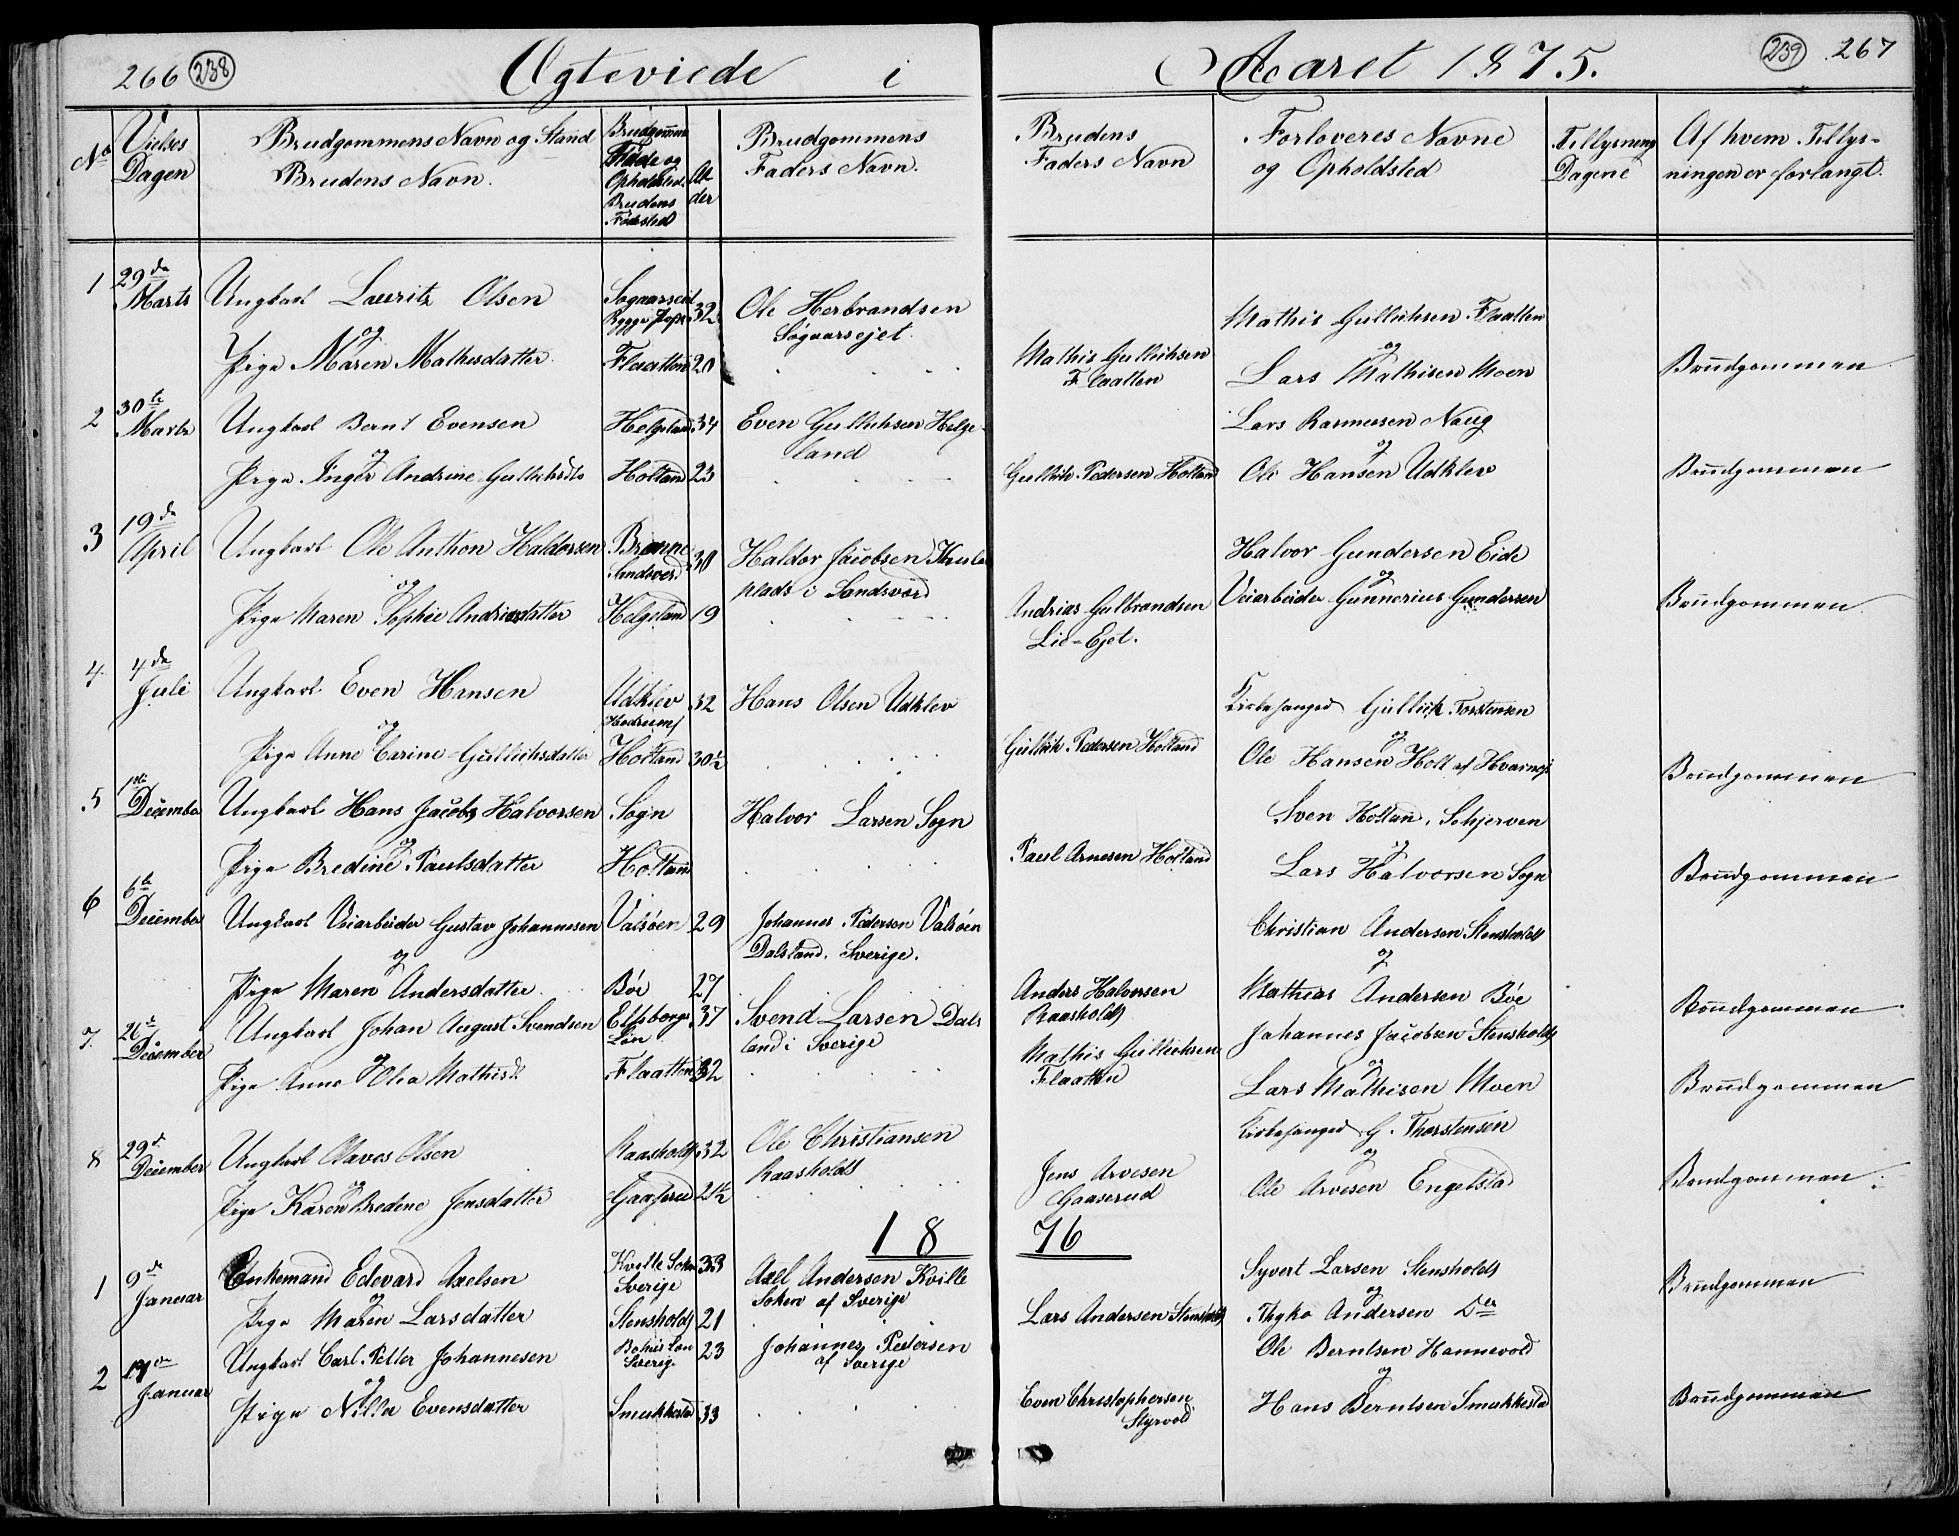 266 238 Ægteviede i Aaret 1875. 239 267
No Vielses Dagen
Brudgommens Navn og Stand
Brudens Navn.
Brudgommens Føde og Opholdsted. Brudens Fødested
Alder
Brudgommens Faders Navn.
Brudens Faders Navn
Forloveres Navne og Opholdsted
Tillysnings Dagene
Af hvem Tillysningen er forlangt.
1 29de Marts Ungkarl Lauritz Olsen 32 Ole Herbrandsen
Søgaarsejet.
Mathis Gullichsen Flaatten
og
Pige Maren Mathisdatter Flaatten 20
Mathis Gullichsen Flaatten
og
Lars Mathisen Moen
Brudgommen
2 30te Marts Ungkarl Bernt Evensen Helgeland 34 Even Gullichsen Helgeland
Lars Rasmusen Naug
og
Pige Inger Andrine Gullichsdtr Holtand 23
Gullich Pedersen Holtand
og
Ole Hansen Udklev
Brudgommen
3 19de April Ungkarl Ole Anthon Haldorsen Sandsverd 30 Haldor Jacobsen
plads i Sandsverd
Halvor Gundersen Eide
og
Pige Maren Sophie Andriasdatter Helgeland 19
Andrias Gulbrandsen
Lie-Ejet.
og
Veiarbeider Gunnerius Gundersen
Brudgommen
4 4de Juli Ungkarl Even Hansen Udklev Hedrum 32 Hans Olsen Udklev
Kirkesanger Gullick Torstensen
og
Pige Anne Carine Gullichsdatter Holtand 30½
Gullich Pedersen Holtand
og
Ole Hansen Holt af Hvarnes
Brudgommen
5 1ste December Ungkarl Hans Jacob Halvorsen Sogn Halvor Larsen Sogn
Sven Holtan, Schjerven
og
Pige Bredine Paulsdatter Holtan
Paul Arnesen Holtand
og
Lars Halvorsen Sogn
Brudgommen
6 6te December Ungkarl Veiarbeider Gustav Johannesen Valsøen 29 Johannes Pedersen Valsøen
Dalsland, Sverige.
Christian Andersen Stensholdt
og
Pige Maren Andersdatter Bøe 27
Anders Halvorsen
Raasholdt
og
Mathias Andersen Bøe
Brudgommen
7 26de December Ungkarl Johan August Svendsen Elfsborgs Län 37 Svend Larsen Dalsland i Sverige
Johannes Jacobsen Stensholdt
og
Pige Anne Olea Mathisd. Flaatten 32
Mathis Gullichsen
Flaatten
og
Lars Mathisen Moen
Brudgommen
8 29de December Ungkarl Olaves Olsen Raasholdt 32 Ole Christiansen
Raasholdt
Kirkesanger G. Thorstensen
og
Pige Karen Bredene Jensdatter Gaaserud 21½
Jens Arvesen
Gaaserud
og
Ole Arvesen Engelstad
Brudgommen
1876
1 9de Januar Enkemand Edevard Axelsen Kville Soken Sverige 33 Axel Andersen Kville
Soken af Sverige
Syvert Larsen Stensholdt
og
Pige Maren Larsdatter Stensholdt 21
Lars Andersen Stensholdt
og
Thyko Andersen Der
Brudgommen
2 17de Januar Ungkarl Carl Petter Johannesen Sverig 23 Johannes Pedersen
af Sverige
Ole Berntsen Hannevold
og
Pige Nilla Evensdatter Smukkestad 33
Even Christophersen
Styrvold
og
Hans Berntsen Smukkestad
Brudgommen